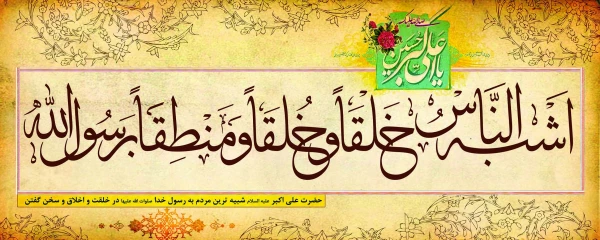 یا علی اکبر حسین
اشبه النّاس خَلقاً و خُلقاً و مَنطِقاً برَسول الله
حضرت علی اکبر علیه السلام شبیه ترین مردم به رسول خدا صلوات الله علیها در خلقت و اخلاق و سخن گفتن